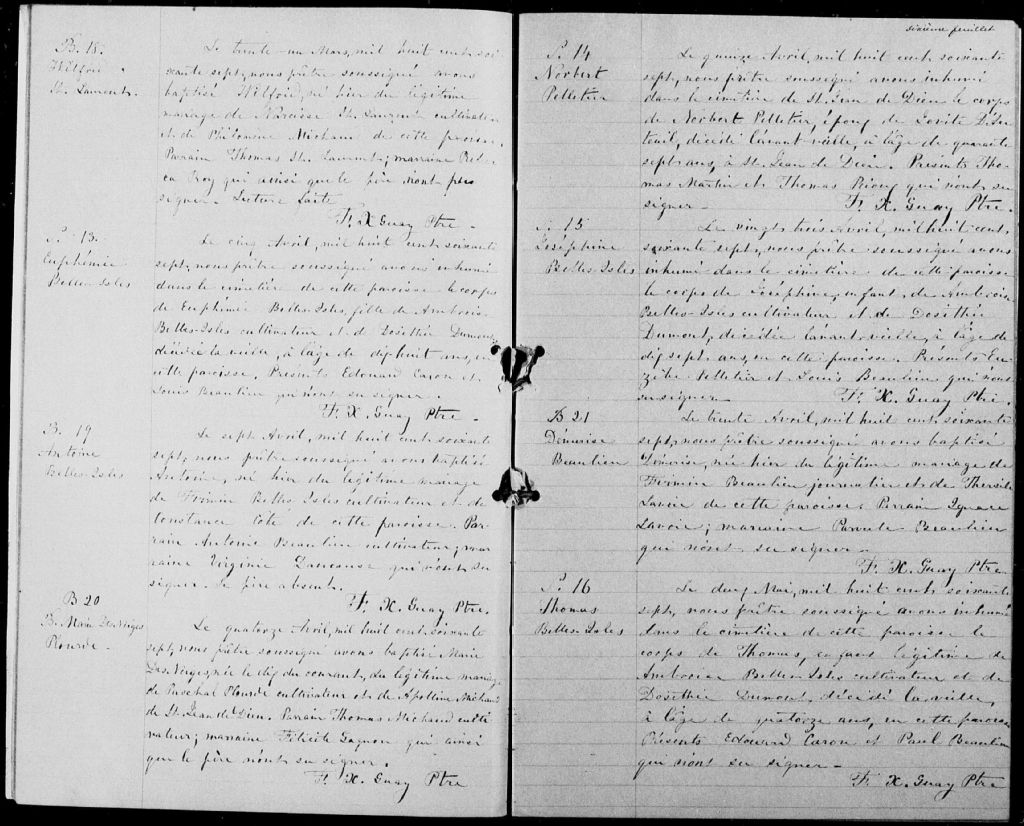 B. 18.
Wilfrid
St. Laurent.
Le trente-un Mars, mil huit cent soi-
xante sept, nous prêtre soussigné avons
baptisé Wilfrid, né hier du légitime
mariage de Narcisse St. Laurent cultivateur
et de Philomène Michaud de cette paroisse.
Parrain Thomas St. Laurent; marraine
Roy qui ainsi que le père n'ont pas
signer. Lecture faite
F. X. Guay Ptre.
S. 13.
Euphémie
Belles-Isles
Le cinq Avril, mil huit cent soixante
sept, nous prêtre soussigné avons inhumé
dans le cimetière de cette paroisse le corps
de Euphémie Belles-Isles, fille de Ambroise
Belles-Isles cultivateur et de Dosithée Dumont,
décédée la veille, à l'âge de dix huit ans, en
cette paroisse. Présents Edouard Caron et
Louis Beaulieu qui n'ont su signer.
F. X. Guay Ptre.
B. 19
Antoine
Belles-Isles
Le sept Avril, mil huit cent soixante
sept, nous prêtre soussigné avons baptisé
Antoine, né hier du légitime mariage
de Firmin Belles-Isles cultivateur et de
Constance Côté de cette paroisse. Par-
rain Antoine Beaulieu cultivateur; mar-
raine Virginie qui n'ont su
signer le père absent.
F. X. Guay Ptre.
B 20
B. Marie Des Neiges
Plourde.
Le quatorze Avril, mil huit cent soixante
sept, nous prêtre soussigné avons baptisé Marie
Des Neiges, née le dix du courant, du légitime mariage
de Paschal Plourde cultivateur et de Apolline Michaud
de St. Jean de Dieu. Parrain Thomas Michaud culti-
vateur; marraine Félicité Gagnon qui ainsi
que le père n'ont su signer.
F. X. Guay Ptre
sixième feuillet
S. 14
Norbert
Pelletier
Le quinze Avril, mil huit cent soixante
sept, nous prêtre soussigné avons inhumé
dans le cimetière de St. Jean de Dieu le corps
de Norbert Pelletier, époux de
décédé l'avant-veille, à l'âge de quarante
sept ans, à St. Jean de Dieu. Présents Tho-
mas Martin et Thomas Rioux qui n'ont su
signer.
F. X. Guay Ptre.
S. 15
Joséphine
Belles-Isles
Le vingt trois Avril, mil huit cent
soixante sept, nous prêtre soussigné avons
inhumé dans le cimetière de cette paroisse
le corps de Joséphine, enfant de Ambroise
Belles-Isles cultivateur et de Dosithée
Dumont, décédée l'avant-veille, à l'âge de
dix sept ans, en cette paroisse. Présents Eu-
zèbe Pelletier et Louis Beaulieu qui n'ont
su signer
F. X. Guay Ptre.
B 21
Démerise
Beaulieu
Le trente Avril, mil huit cent soixante
sept, nous prêtre soussigné avons baptisé
Démerise, née hier du légitime mariage de
Firmin Beaulieu journalier et de Thersile
Lavoie de cette paroisse. Parrain Ignace
Lavoie; marraine Beaulieu
qui n'ont su signer
F. X. Guay Ptre
S. 16
Thomas
Belles-Isles
Le deux Mai, mil huit cent soixante
sept, nous prêtre soussigné avons inhumé
dans le cimetière de cette paroisse le
corps de Thomas, enfant légitime de
Ambroise Belles-Isles cultivateur et de
Dosithée Dumont, décédé la veille,
à l'âge de quatorze ans, en cette paroisse.
Présents Edouard Caron et Paul Beaulieu
qui n'ont su signer
F. X. Guay Ptre